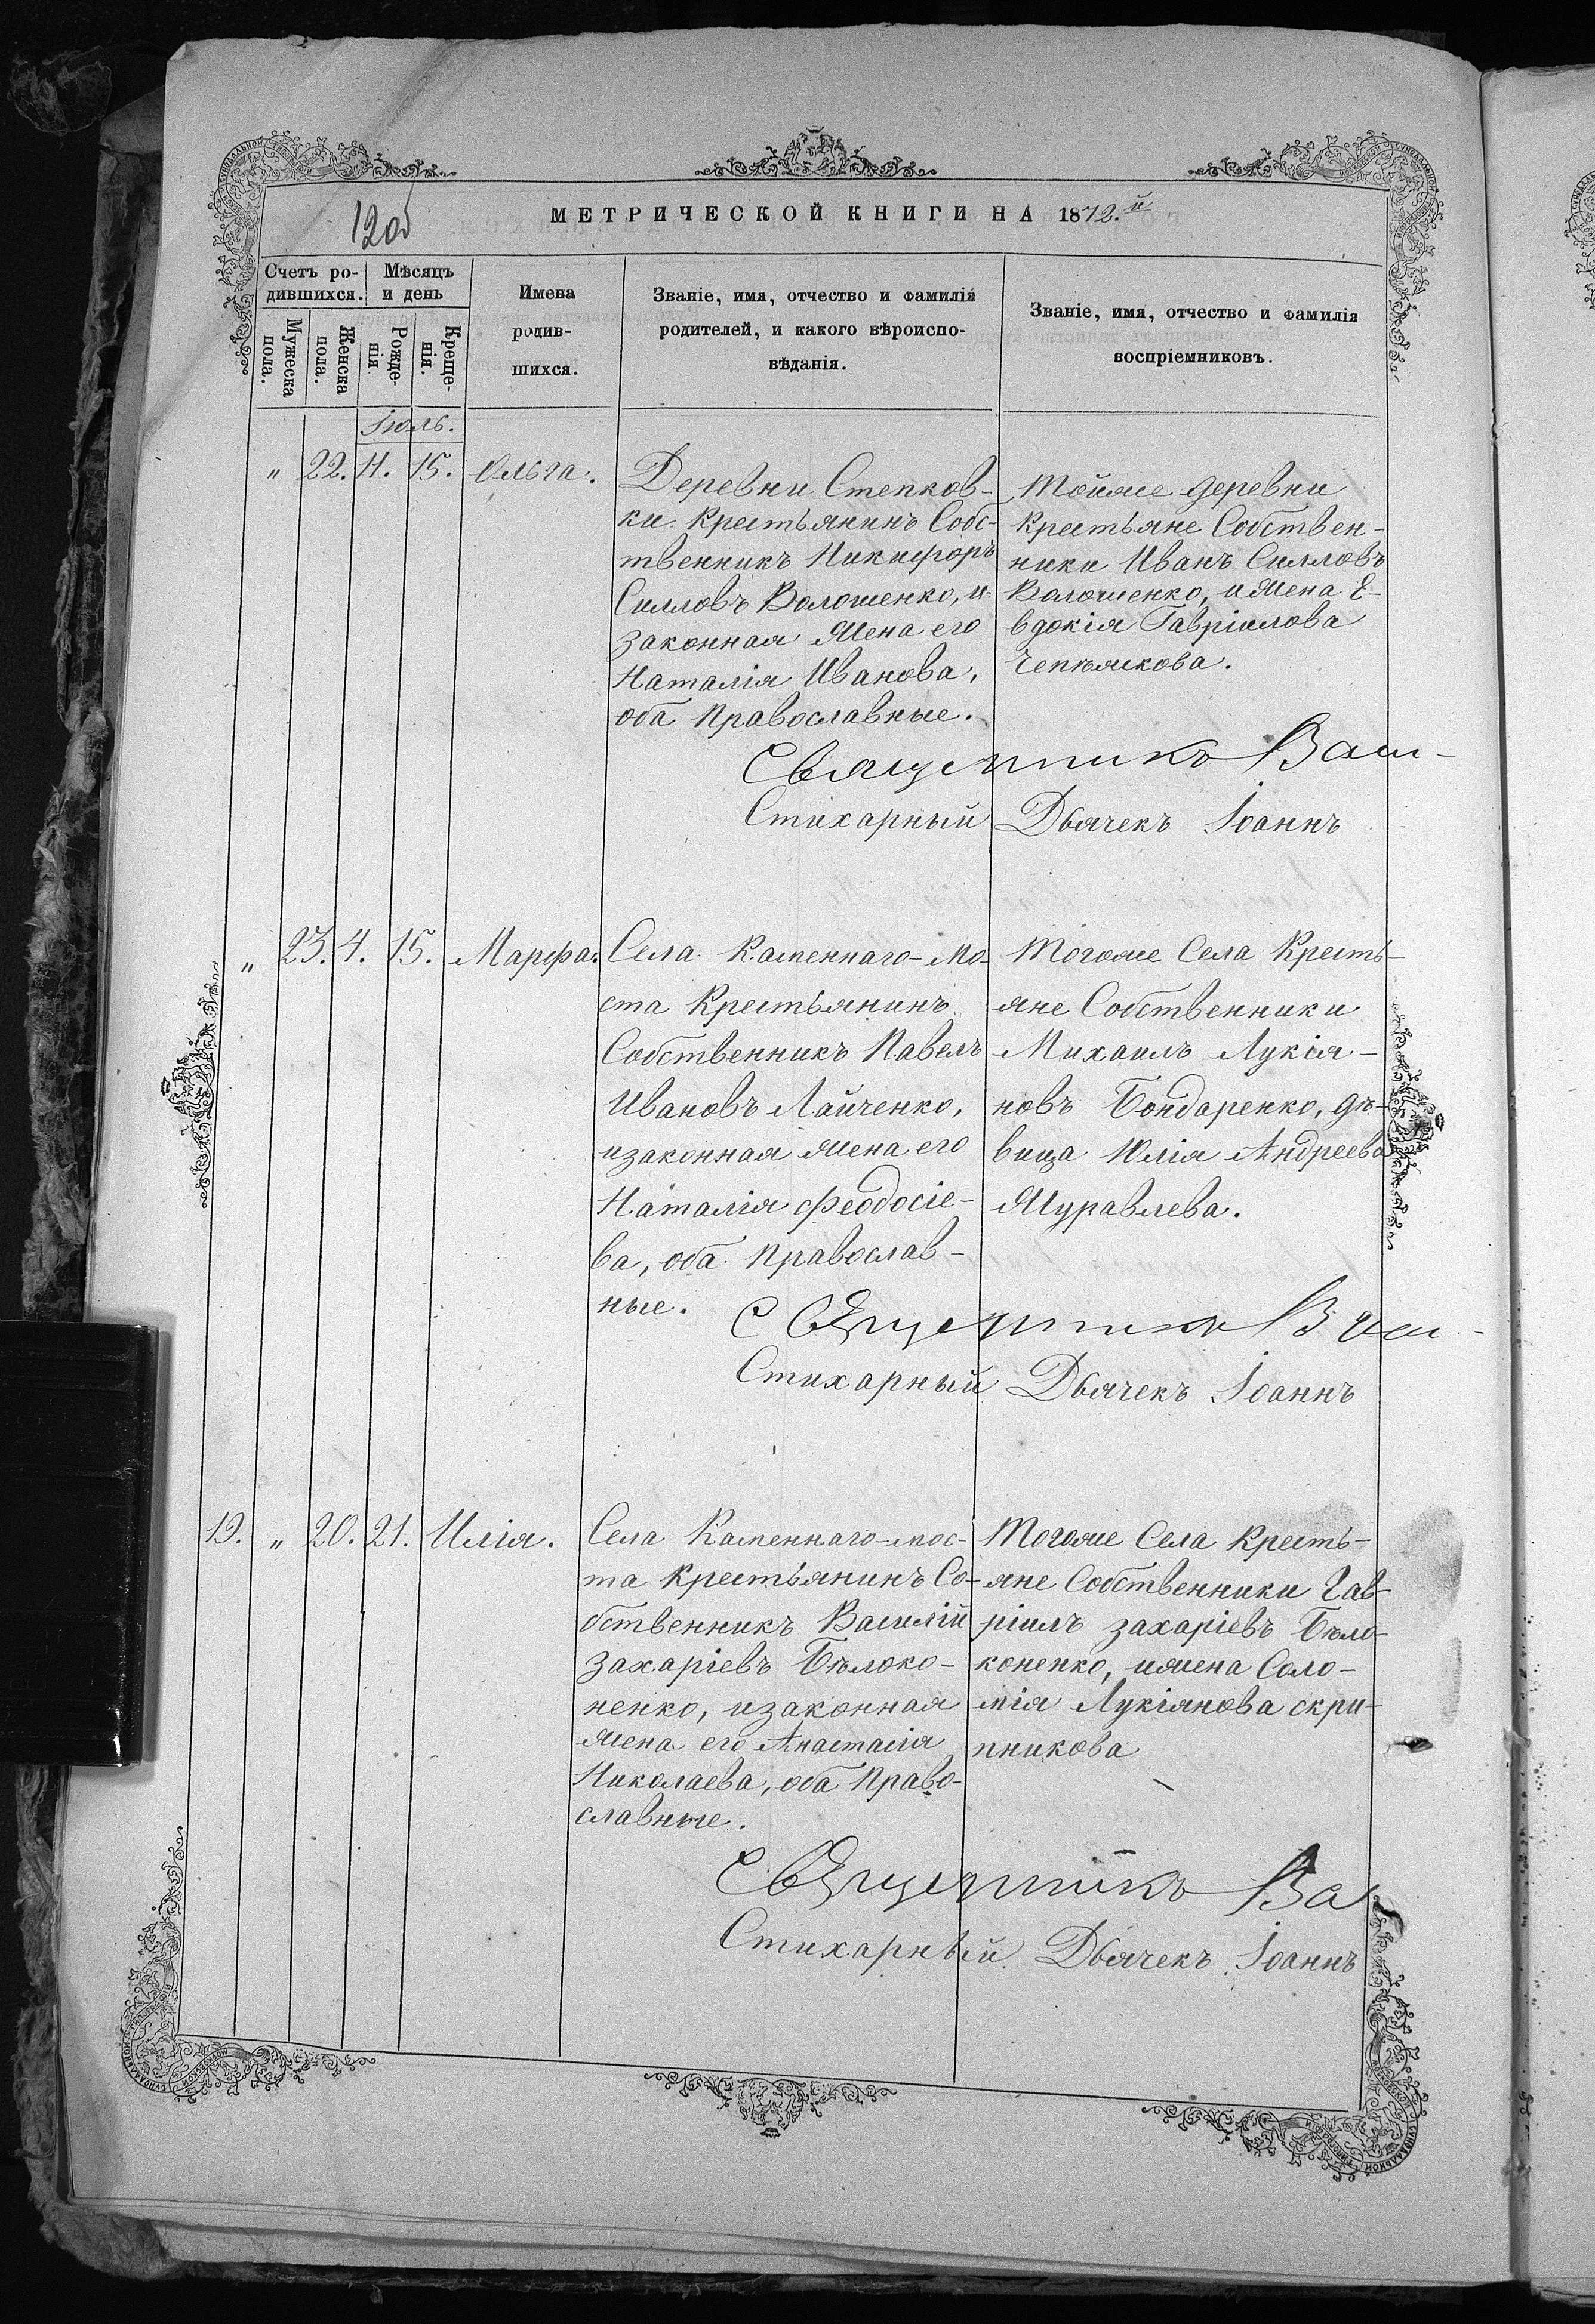 МЕТРИЧЕСКОЙ КНИГИ НА 1872.й
1205
Счетъ ро-
дившихся.
Мѣсяцъ
и день
Мужеска
пола.
Женска
пола.
Рожде-
нія.
Креще-
нія.
Имена
родив-
шихся.
Званіе, имя, отчество и фамилія
родителей, и какого вѣроиспо-
вѣданія.
Званіе, имя, отчество и фамилія
воспріемниковъ.
Іюль.
" 22. 11. 15. Ольга.
Деревни Степков-
ки Крестьянинъ Собс-
твенникъ Никифоръ
Силловъ Волошенко, и
законная Жена его
Наталія Иванова,
оба Православные.
Тойже деревни
Крестьяне Собствен-
ники Иванъ Силловъ
Волошенко, и Жена Е-
вдокія Гавріилова
Чепижкова.
Священникъ Васи-
Стихарный Дьячекъ Іоаннъ
" 23. 4. 15. Марфа.
Села Каменнаго-Мо-
ста Крестьянинъ
Собственникъ Павелъ
Ивановъ Лайченко,
изаконная Жена его
Наталія Феодосіе-
ва, оба Православ-
ные.
Тогоже Села Кресть-
яне Собственники
Михаилъ Лукія-
новъ Бондаренко, дѣ-
вица Юлія Андреева
Журавлева.
Священникъ Васи-
Стихарный Дьячекъ Іоаннъ
19. " 20. 21. Илія.
Села Каменнаго-мос-
та Крестьянинъ Со-
бственникъ Василій
Захаріевъ Бѣлоко-
ненко, изаконная
Жена его Анастасія
Николаева, оба Право-
славные.
Тогоже Села Кресть-
яне Собственники Гав-
ріилъ Захаріевъ Бѣло-
коненко, ижена Соло-
мія Лукіянова скри-
пникова
Священникъ Ва
Стихарный Дьячекъ Іоаннъ